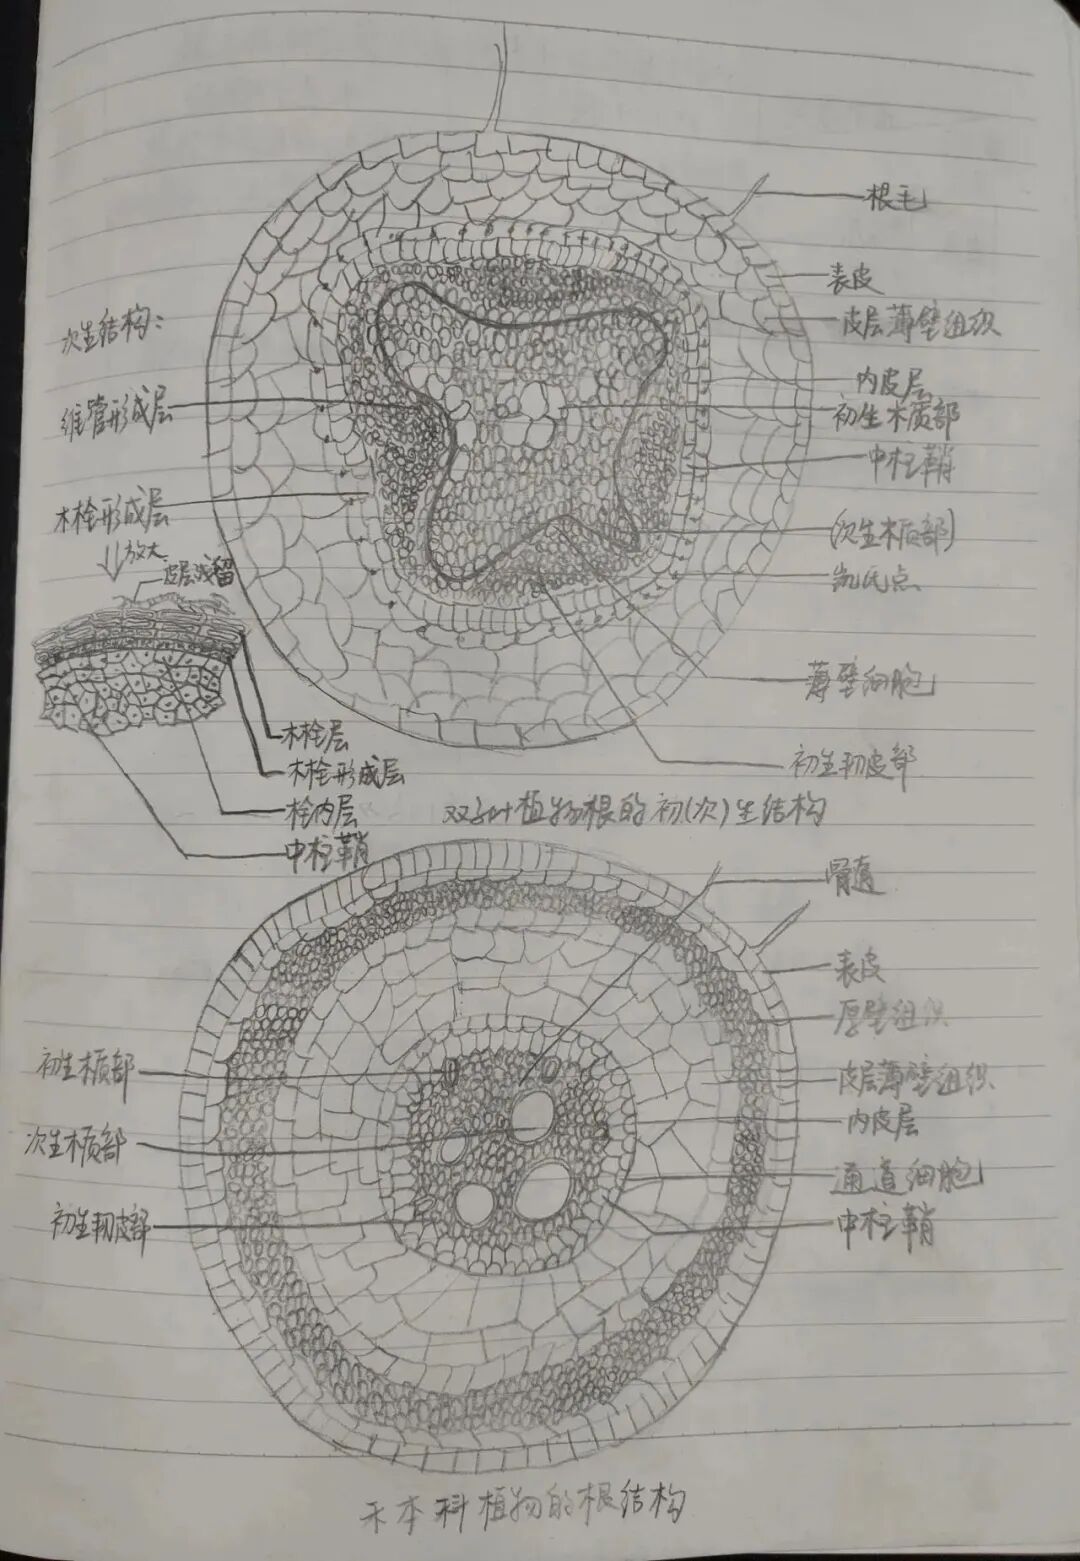 根毛
表皮
皮层薄壁组织
内皮层
初生木质部
中柱鞘
(次生木质部)
凯氏点
薄壁细胞
初生韧皮部
次生结构:
维管形成层
木栓形成层
放大
皮层残留
木栓层
木栓形成层
栓内层
中柱鞘
双子叶植物根的初(次)生结构
表皮
厚壁组织
皮层薄壁组织
内皮层
通道细胞
中柱鞘
初生木质部
次生木质部
初生韧皮部
禾本科植物的根结构